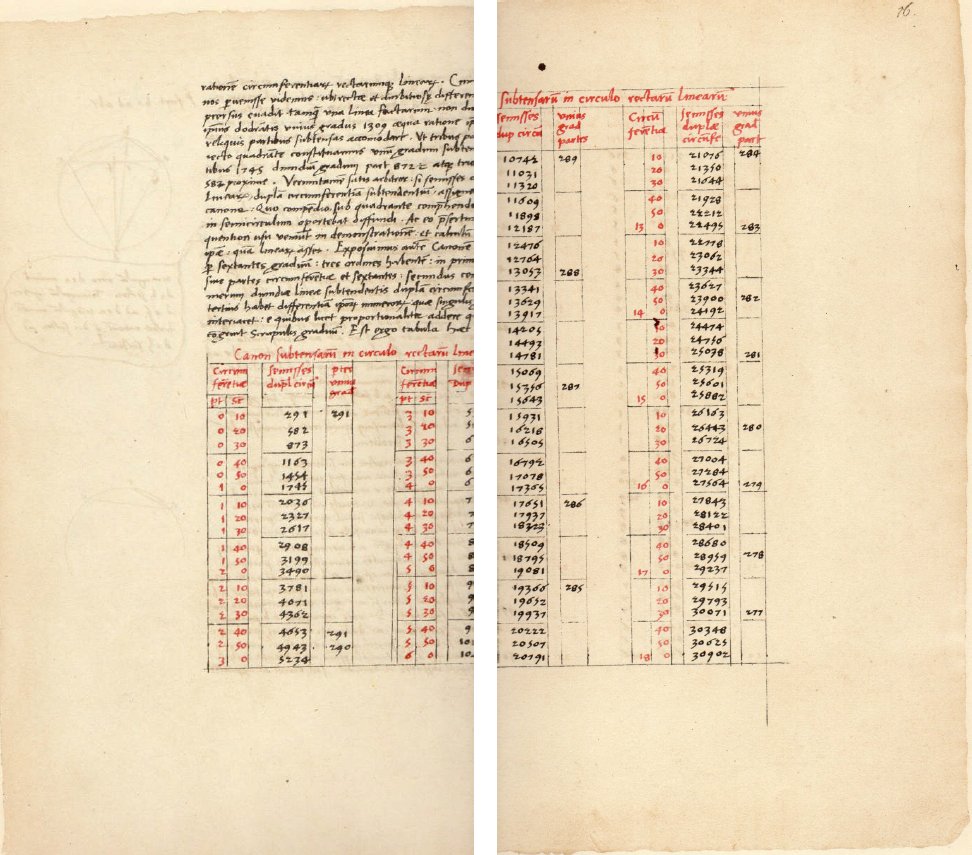 16.
rationē circumferentiarum rectarumque linearum. Con
nos pervenisse videmus: ubi recta et
prorsus evadit tamquam una linea factarum. non du
ipsius dodrātis unius gradus 1309 æqua ratione
reliquis partibus subtensas accomodare. Ut tribus
recto quadrāte constituamus unius gradum subten
tibus 1745 dimidium gradum part 872 2 atque
582 proxime. Veruntamen satis arbitror: si semisses
linearum dupla circumferentia subtendentium assigne
canone. Quo compendio sub quadrante comprehenda
in semicirculum oportebat diffundi. Ac eo præsertim
quentiori usu veniunt in demonstrationē et calculū
ipsæ: quam linearum asses. Exposuimus autē Canonē
per sextantes graduum: tres ordines habentē: in prim
sive partes circumferētiæ et sextantes: secundus con
merum dimidiæ lineæ subtendentis duplam circumfe
tertius habet differentiā ipsorum numerorum quæ singulis
interiacet: e quibus licet proportionaliter addere
congruit scrupulis graduum. Est ergo tabula hæc
Canon subtensarū in circulo rectarū line
Circum ferētiæ semisses dupl circū ptes unius grad Circum ferētiæ
pt sc pt sc
0 10 291 291 3 10
0 20 582 3 20
0 30 873 3 30
0 40 1163 3 40
0 50 1454 3 50
1 0 1745 4 0
1 10 2036 4 10
1 20 2327 4 20
1 30 2617 4 30
1 40 2908 4 40
1 50 3199 4 50
2 0 3490 5 0
2 10 3781 5 10
2 20 4071 5 20
2 30 4362 5 30
2 40 4653 291 5 40
2 50 4943 290 5 50
3 0 5234 6 0
subtensarū in circulo rectarū linearū
semisses dup circū unius grad partes Circū ferētia semisses duplæ circūfe unius grad part
10742 289 10 21076 284
11031 20 21350
11320 30 21644
11609 40 21928
11898 50 22212
12187 13 0 22495 283
12476 10 22778
12764 20 23062
13053 288 30 23344
13341 40 23627
13629 50 23900 282
13917 14 0 24192
14205 10 24474
14493 20 24756
14781 30 25038 281
15069 40 25319
15356 287 50 25601
15643 15 0 25882
15931 10 26163
16218 20 26443 280
16505 30 26724
16792 40 27004
17078 50 27284
17365 16 0 27564 279
17651 286 10 27843
17937 20 28122
18323 30 28401
18509 40 28680
18795 50 28959 278
19081 17 0 29237
19366 285 10 29515
19652 20 29793
19937 30 30071 277
20222 40 30348
20507 50 30625
20791 18 0 30902